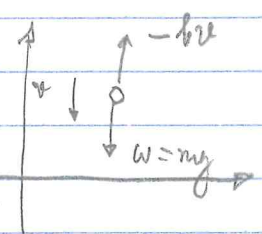 -bv
v
w = mg